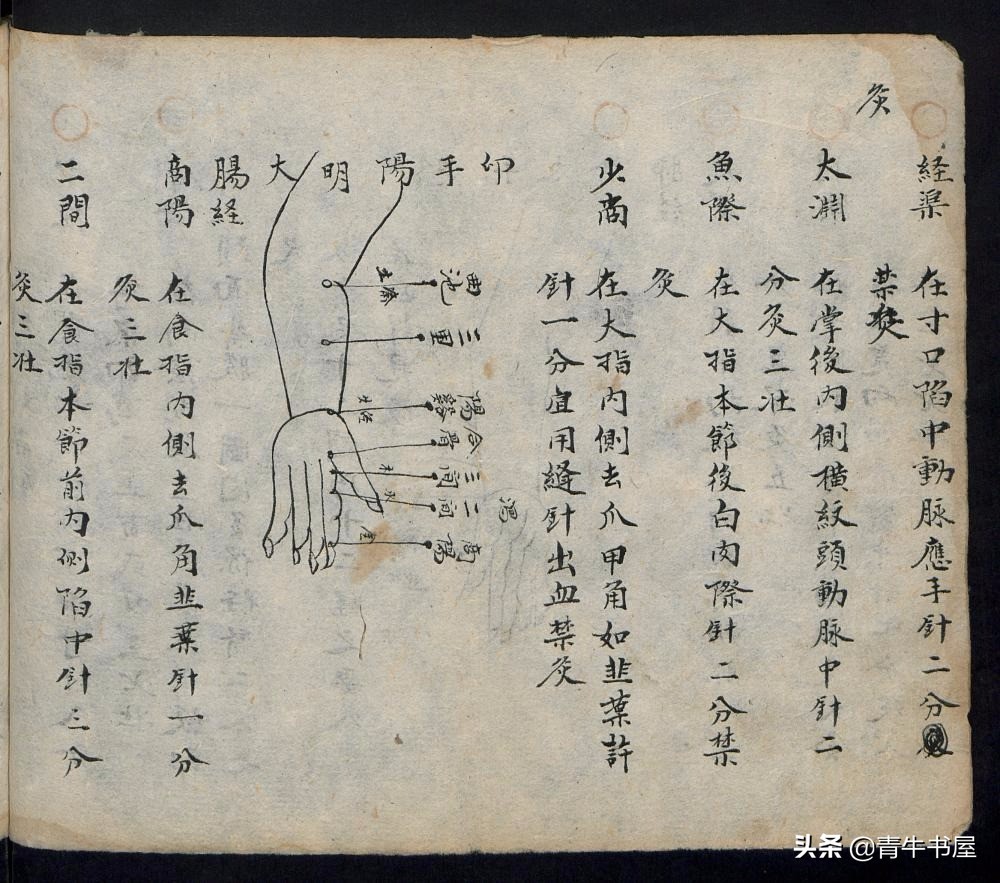 灸
経渠 在寸口陷中動脉應手針二分
禁灸
太淵 在掌後内側横紋頭動脉中針二
分灸三壮
魚際 在大指本節後白肉際針二分禁
灸
少商 在大指内側去爪甲角如韭葉許
針一分宜用縫針出血禁灸
卯手陽明大
腸経
曲池
土
三里
陽谿
火 経
合骨
三间
木
二间
水
商陽
金
瀉
商陽 在食指内側去爪角韭葉針一分
灸三壮
二間 在食指本節前内側陷中針三分
灸三壮
头条 @青牛书屋